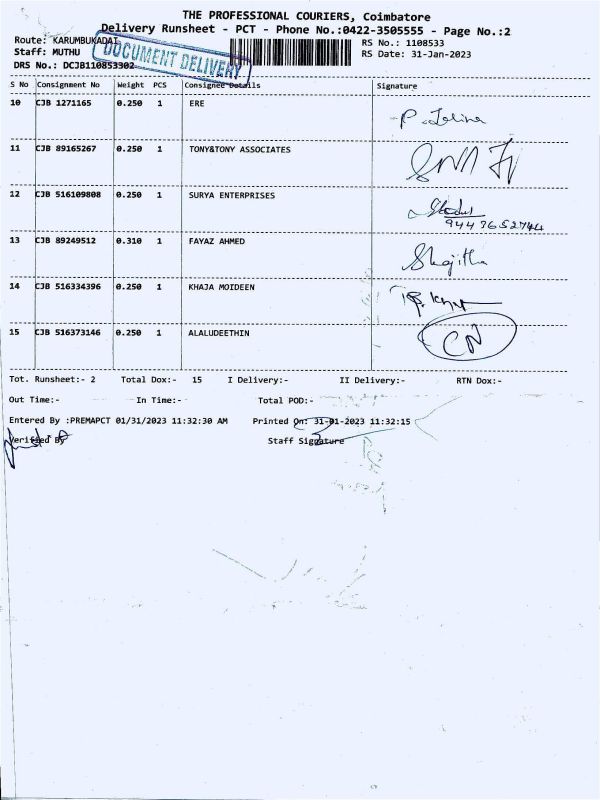 THE PROFESSIONAL COURIERS, Coimbatore
Delivery Runsheet - PCT - Phone No.:0422-3505555 - Page No.:2
Route: KARUMBUKADAI
RS No.: 1108533
Staff: MUTHU
RS Date: 31-Jan-2023
DRS No.: DCJB110853302
DOCUMENT DELIVERY
S No Consignment No Weight PCS Consignee Details Signature
10 CJB 1271165 0.250 1 ERE
11 CJB 89165267 0.250 1 TONY&TONY ASSOCIATES
12 CJB 516109808 0.250 1 SURYA ENTERPRISES
13 CJB 89249512 0.310 1 FAYAZ AHMED Shajitha
14 CJB 516334396 0.250 1 KHAJA MOIDEEN
15 CJB 516373146 0.250 1 ALALUDEETHIN CN
Tot. Runsheet:- 2 Total Dox:- 15 I Delivery:- II Delivery:- RTN Dox:-
Out Time:- In Time:- Total POD:-
Entered By :PREMAPCT 01/31/2023 11:32:30 AM Printed On: 31-01-2023 11:32:15
Verified By Staff Signature